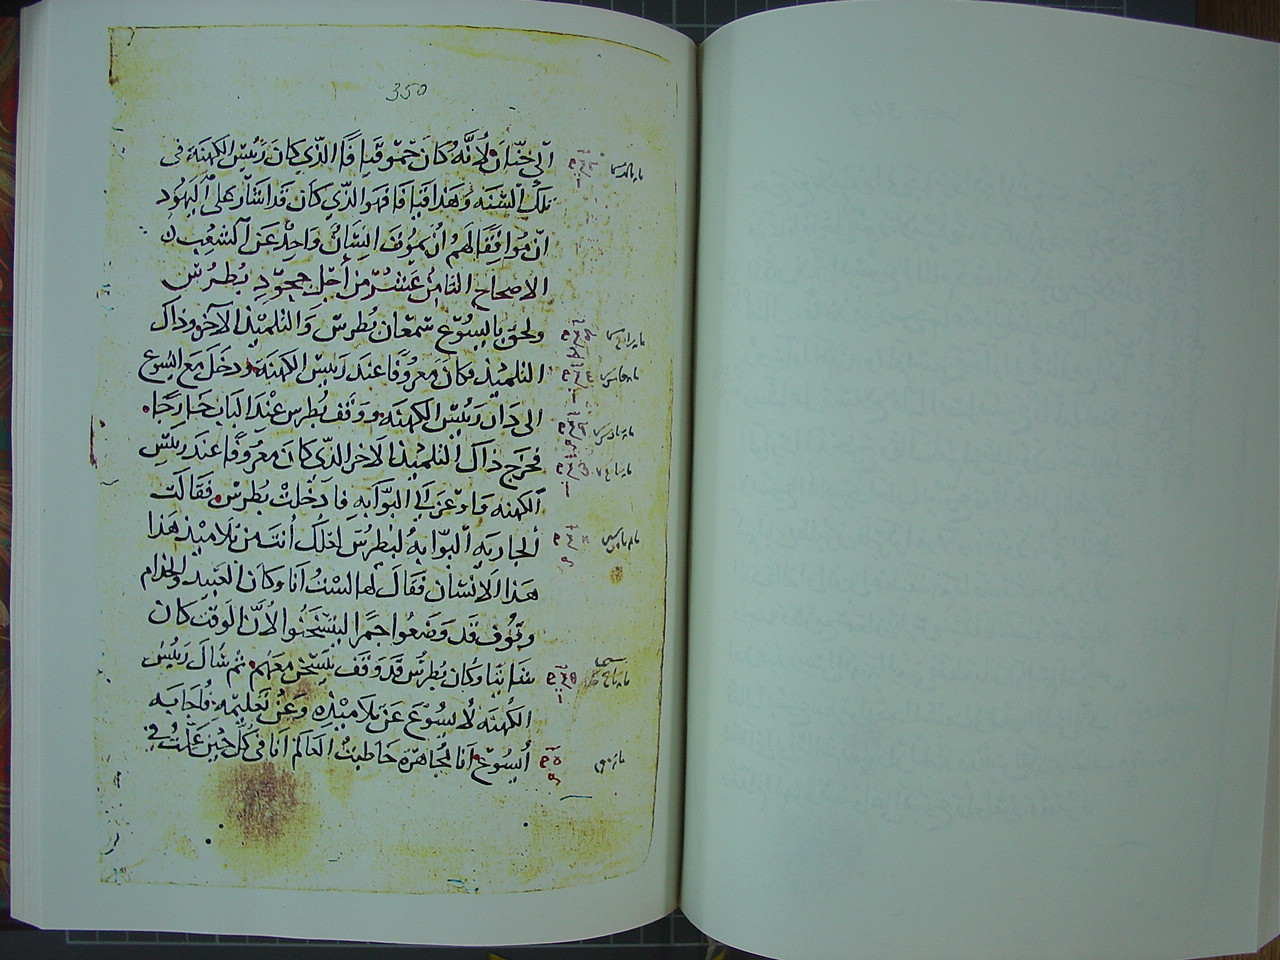 350
الى حنّان لأنّه كان حمو قيافا الذي كان رئيس الكهنه فى
تلك السنه وهذا قيافا فهو الذي كان قد اشار على اليهود
ان موافقا لهم ان يموت انسان واحد عن الشعب
الاصحاح الثامن عشر من أجل جحود بطرس
ولحق باليسوع سمعان بطرس والتلميذ الآخر وذاك
التلميذ فكان معروفا عند رئيس الكهنه ودخل مع اليسوع
الى دار رئيس الكهنه ووقف بطرس عند الباب خارجا
فخرج ذاك التلميذ الاخر الذي كان معروفا عند رئيس
الكهنه فاوعز الى البوابه فادخلت بطرس فقالت
الجاريه البوابه لبطرس لعلك أنت من تلاميذ هذا
هذا الانسان فقال لها لست انا وكان العبيد والخدام
وقوف قد وضعوا جمرا ليتسخنوا لأن الوقت كان
شفانيا وكان بطرس قد وقف يتسخن معهم ثم سال رئيس
الكهنه لايسوع عن تلاميذه وعن تعليمه فاجابه
أيسوع انا مجاهرة خاطبت العالم انا في كل حين علمت في